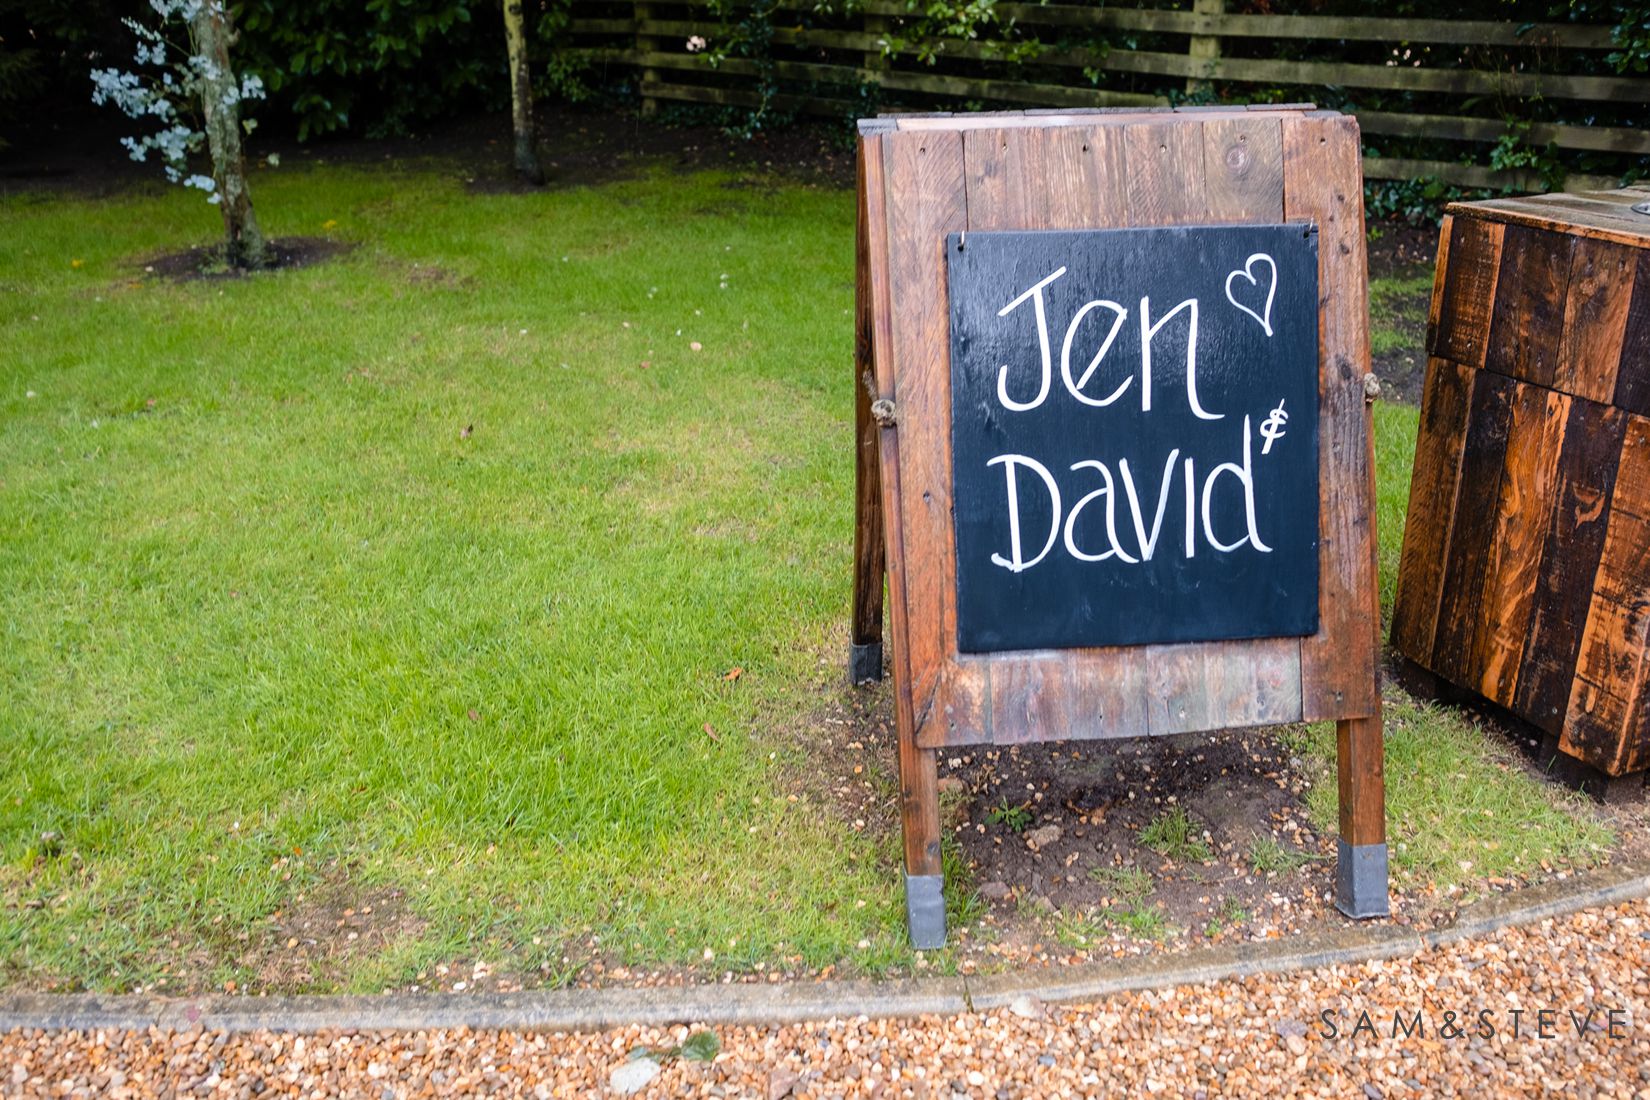 Jen ♡
&
David
SAM&STEVE